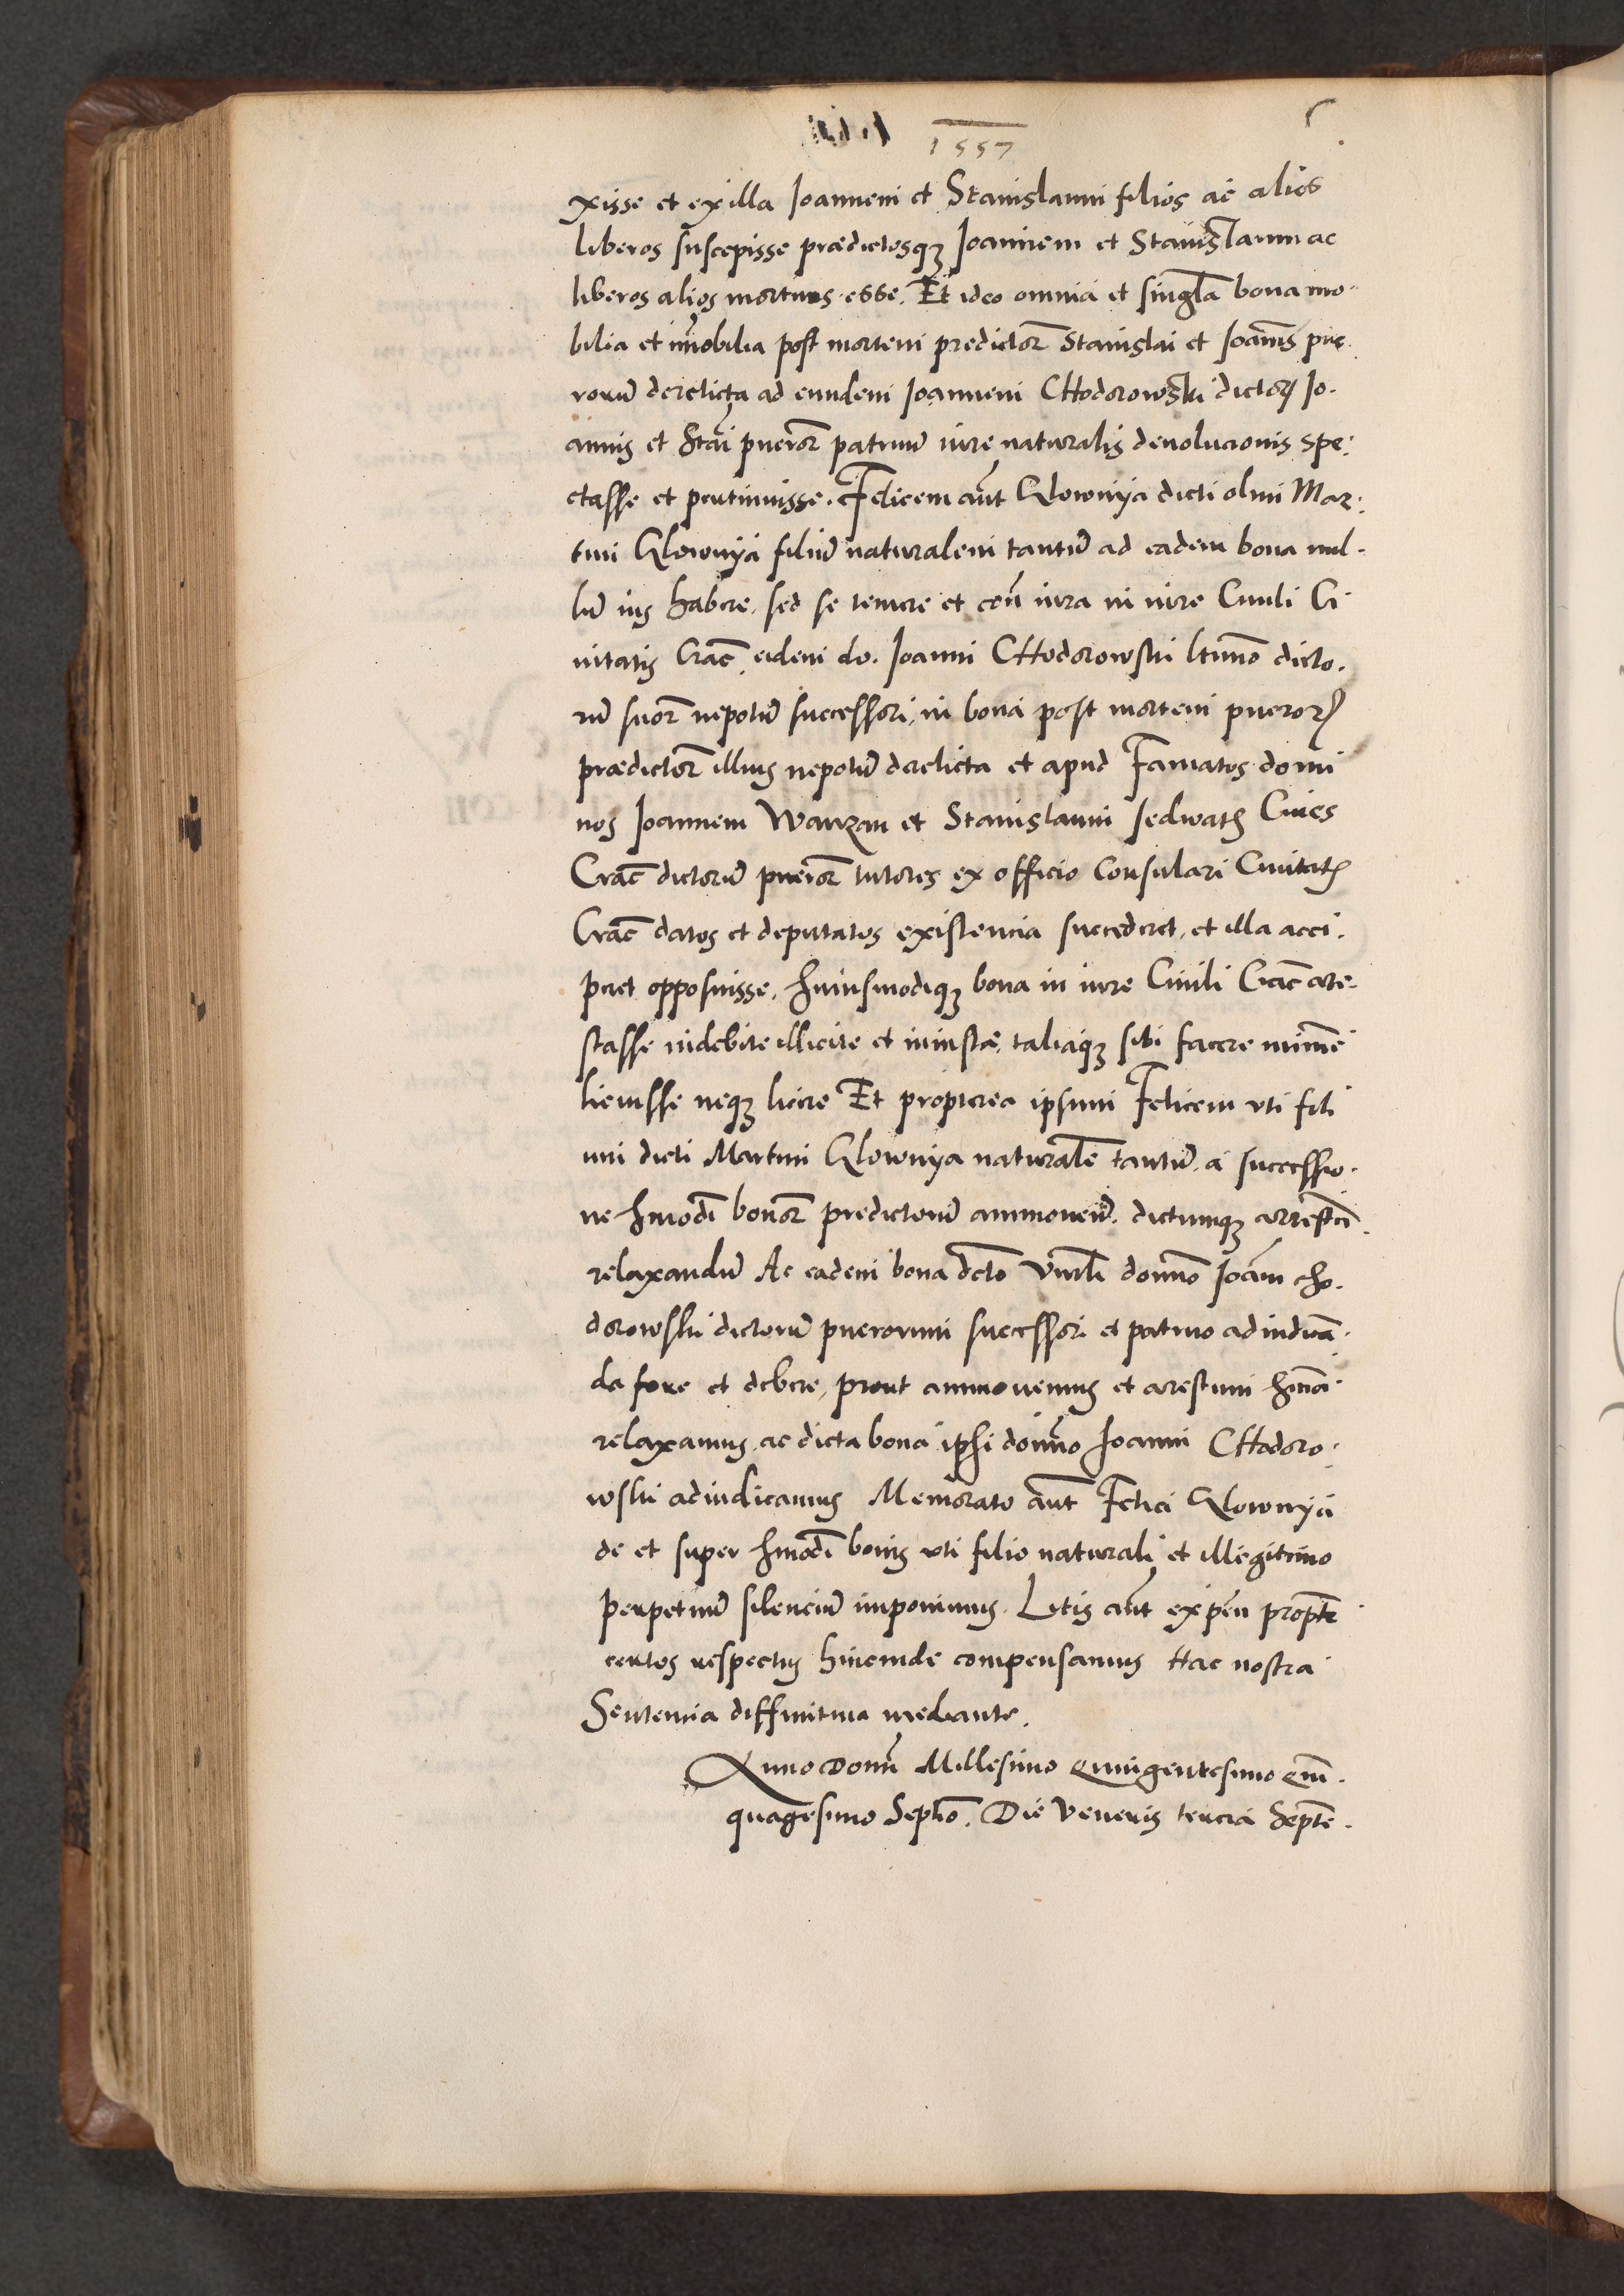 1557
xisse et ex illa Joannem et Stanislaum filios ac alios
liberos suscepisse prædictosq₃ Joannem et Stanislaum ac
liberos alios mortuos esse. Et ideo omnia et singła bona mo-
bilia et im̃obilia post mortem predictor̃ Stanislai et Joañis pue
rorũ derelicta ad eundem Joannem CHodorowski dictoꝝ Jo-
annis et Stãi pueror̃ patruũ iure naturalis deuolucionis spe-
ctasse et pertinuisse. Felicem aũt Glownya dicti olim Mar-
tini Glownya filiũ naturalem tantũ ad eadem bona nul-
lũ ius habere, sed se temere et con̄ iura in iure Ciuili Ci-
uitatis Crac̃ eidem do. Joanni CHodorowski ltimo dicto-
rũ suor̃ nepotũ successori, in bona post mortem pueroꝝ
prædictor̃ illius nepotũ derelicta et apud Famatos domi
nos Joannem Wanzan et Stanislaum Sedwatꝭ Ciues
Crac̃ dictorũ pueror̃ tutores ex officio Consulari Ciuitatꝭ
Crac̃ datos et deputatos existencia succederet, et illa acci-
peret opposuisse, huiusmodiq₃ bona in iure Ciuili Crac̃ are-
stasse indebite illicite et iniustæ, taliaq₃ sibi facere minime
licuisse neq₃ licere Et propterea ipsum Felicem vti fili
um dicti Martini Glownya naturalẽ tantũ, a successio-
ne hmõdi bonor̃ predictorũ ammouenđ. dictumq₃ arrestũ
relaxandũ Ac eadem bona dcto Vnrbli domino Joãni cho-
dorowski dictorũ puerorum successori et patruo adiudicã-
da fore et debere, prout ammouemus et arestum hmõi
relaxamus, ac dicta bona ipsi domino Joanni CHodoro-
wski adiudicamus Memorato aũt Felici Glownya
de et super hmõdi bonis vti filio naturali et illegitimo
perpetuũ silenciũ imponimus. Litis aũt expeñ propter
certos respectus hincinde compensamus Hac nostra
Sentencia diffinitiua mediante.
Anno Domi Millesimo Quingentesimo Quin-
quagesimo Septimo. Die Veneris tercia Septe-